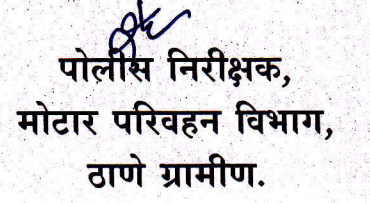 पोलीस निरीक्षक,
मोटार परिवहन विभाग,
ठाणे ग्रामीण.